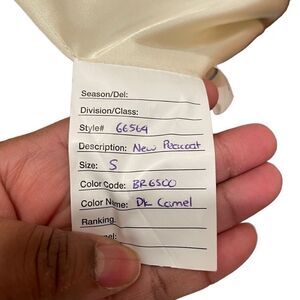 Season/Del:
Division/Class:
Style# 66564
Description: New Peacoat
Size: S
Color Code: BR6500
Color Name: Dk Camel
Ranking
nel: